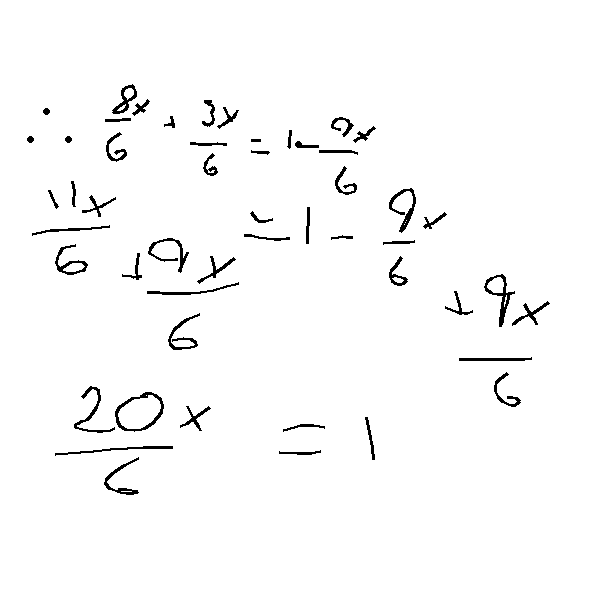 ∴ 8x/6 + 3x/6 = 1 - 9x/6
11x/6 = 1 - 9x/6
+ 9x/6 + 9x/6
20x/6 = 1